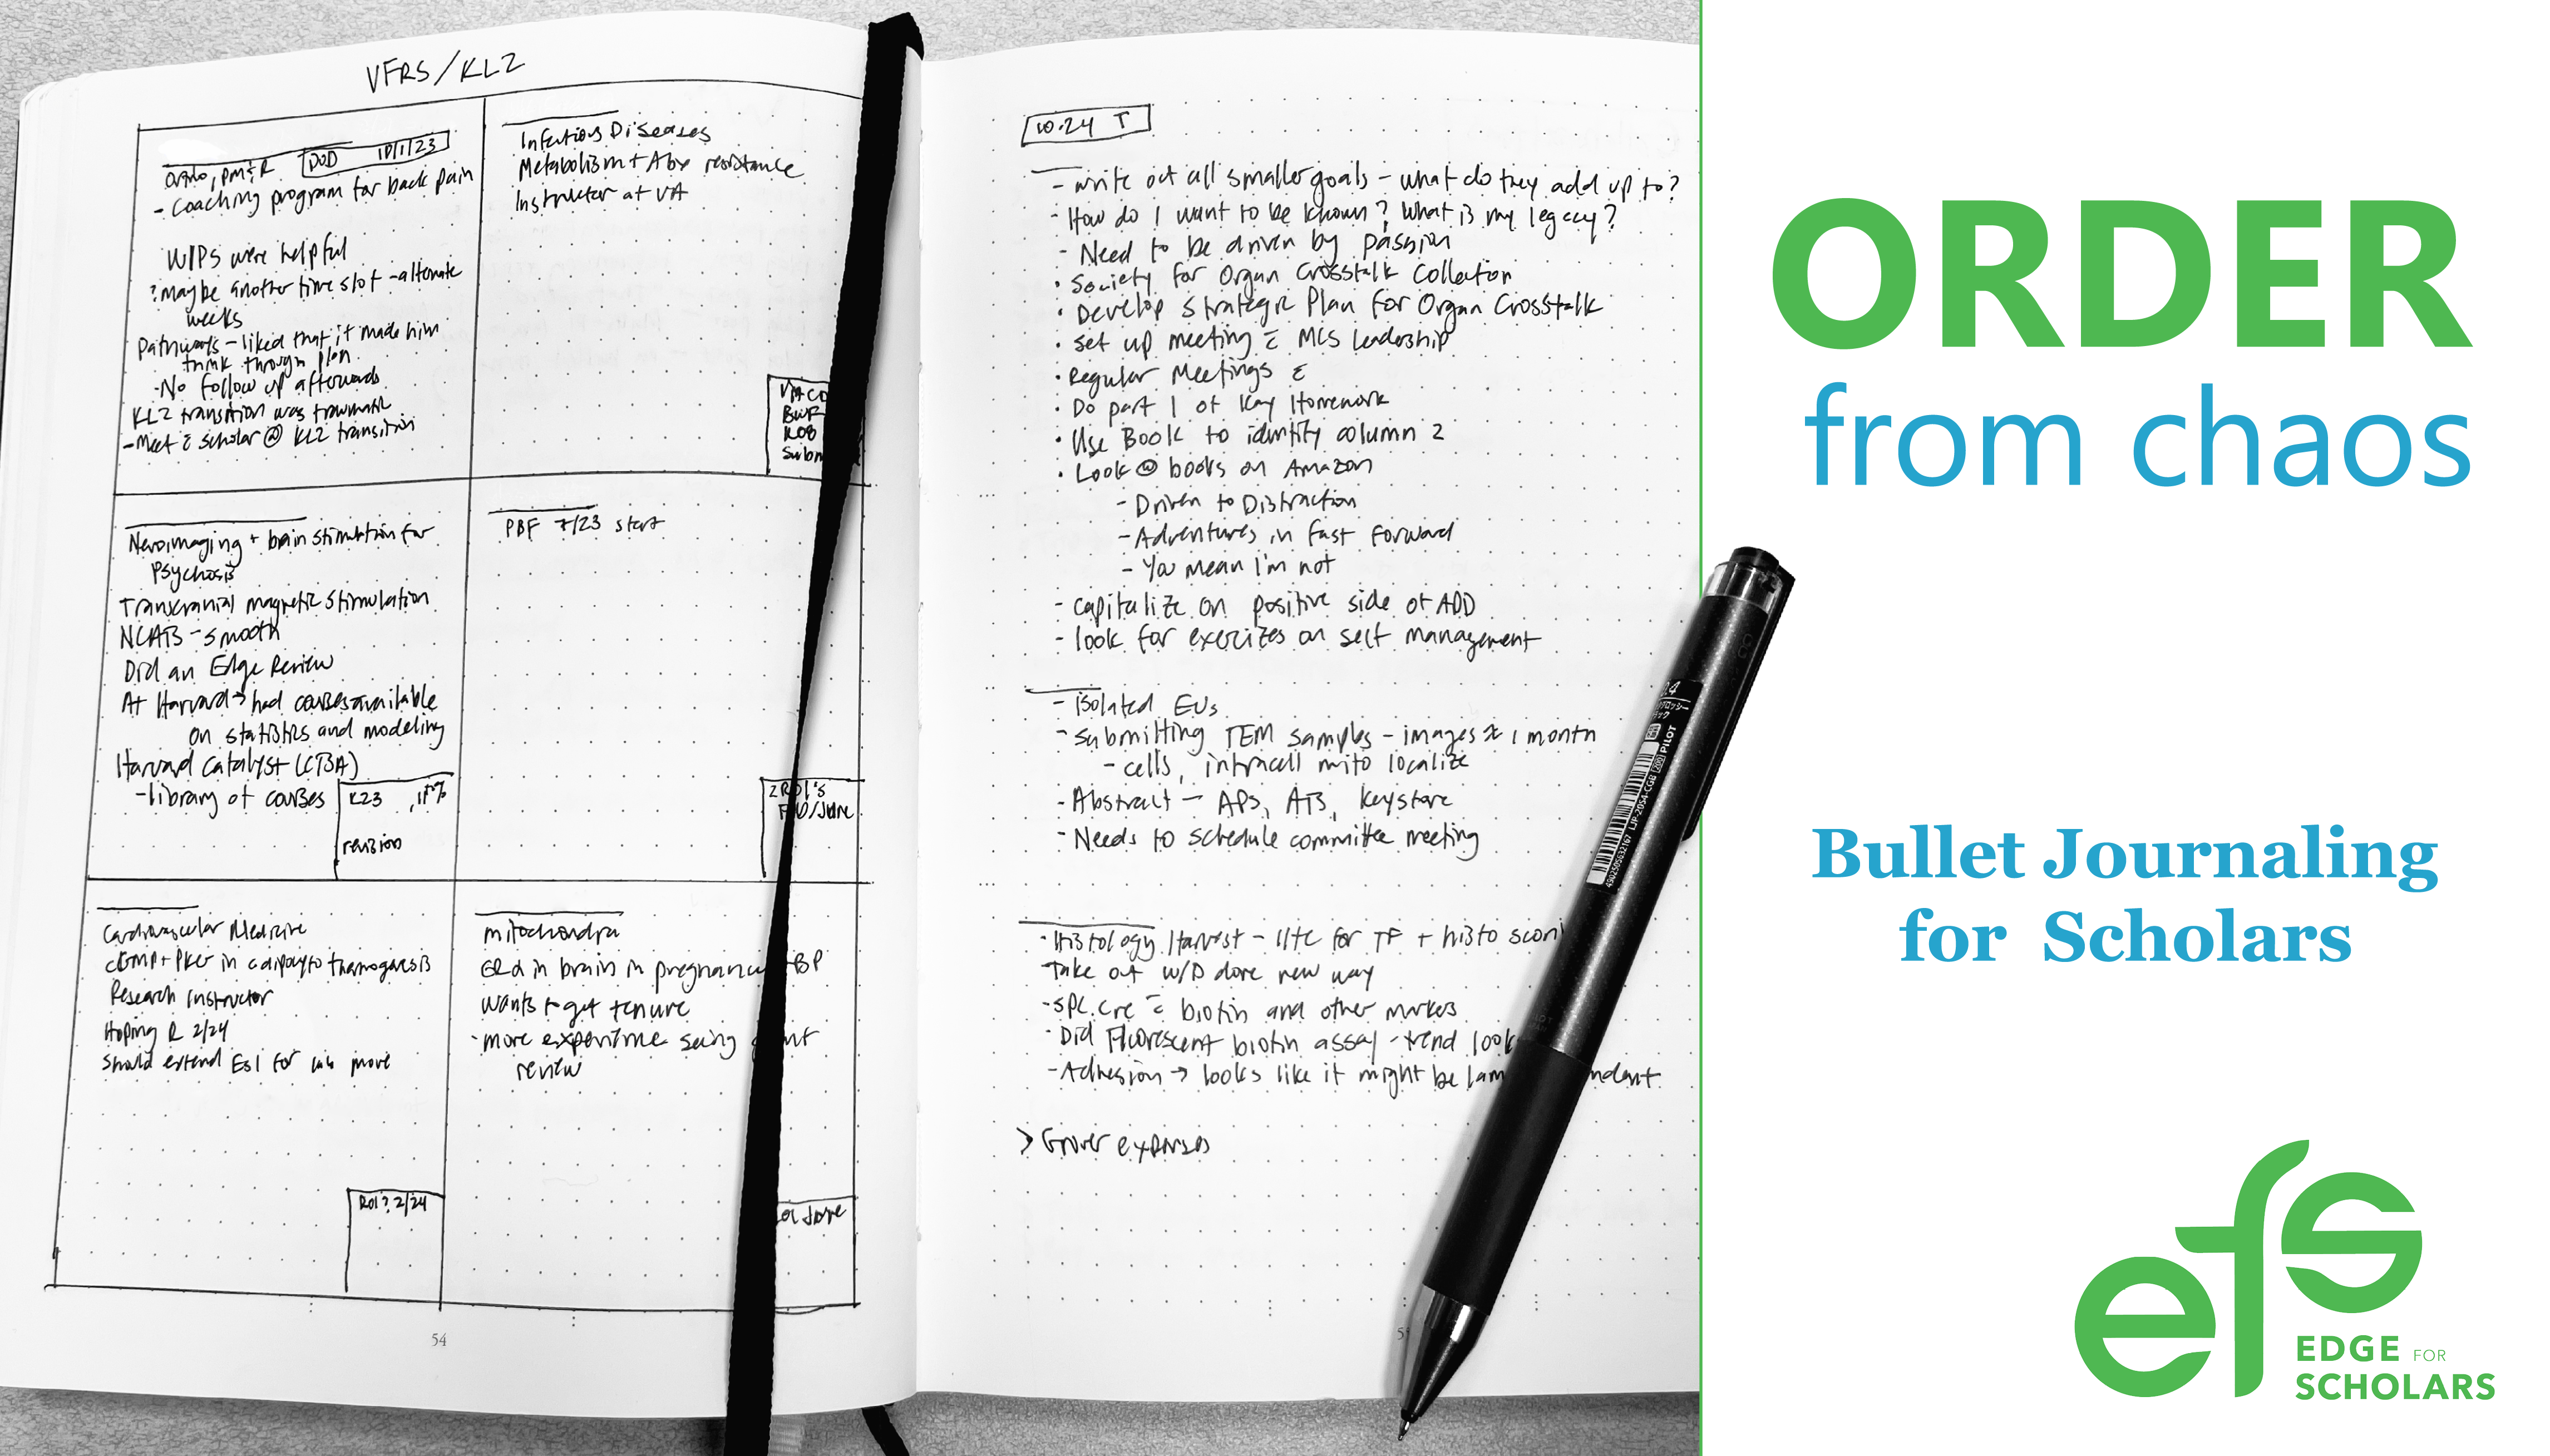 VFRS/KL2
Ortho, PM&R DOD 10/1/23
- Coaching program for back pain
WIPS were helpful
? maybe another time slot - alternate
weeks
Pathways - liked that it made him
think through plan
- No follow up afterwards
KL2 transition was traumatic
- Meet c̄ scholar @ KL2 transition
Infectious Diseases
Metabolism + Abx resistance
Instructor at VA
VACD
BWF
Subm
Neuroimaging + brain stimulation for
Psychosis
Transcranial magnetic stimulation
NCATS - smooth
Did an Edge Review
At Harvard → had courses available
on statistics and modeling
Harvard Catalyst (CTSA)
- library of courses
K23
revision
PBF 7/23 start
2 R01's
/June
Cardiovascular Medicine
cGMP + PKG in adipocyte thermogenesis
Research Instructor
Hoping R 2/24
Should extend ESI for lab move
R01? 2/24
mitochondria
in brain in pregnancy BP
wants to get tenure
- more experience seeing grant
review
June
54
10.24 T
- write out all smaller goals - what do they add up to?
- How do I want to be known? What is my legacy?
- Need to be driven by passion
· Society for Organ Crosstalk Collection
· Develop Strategic Plan for Organ Crosstalk
· Set up meeting c̄ MCS Leadership
· Regular Meetings c̄
· Do part 1 of Kay Homework
· Use Book to identify column 2
· Look @ books on Amazon
- Driven to Distraction
- Adventures in Fast Forward
- You mean I'm not
- capitalize on positive side of ADD
- look for exercizes on self management
- Isolated EVs
- submitting TEM samples - images ≈ 1 month
- cells, intracell mito localize
- Abstract - APS, ATS, Keystone
- Needs to schedule committee meeting
- Histology Harvest - for TF + histo scori
Take out W/D done new way
- SPC cre c̄ biotin and other markers
· Did Fluorescent biotin assay - trend look
- Adhesion → looks like it might be lam ndent
> Grover expenses
0.4
PILOT
LJP-20S4-CGB
4902505632167
ORDER
from chaos
Bullet Journaling
for Scholars
efs
EDGE FOR
SCHOLARS